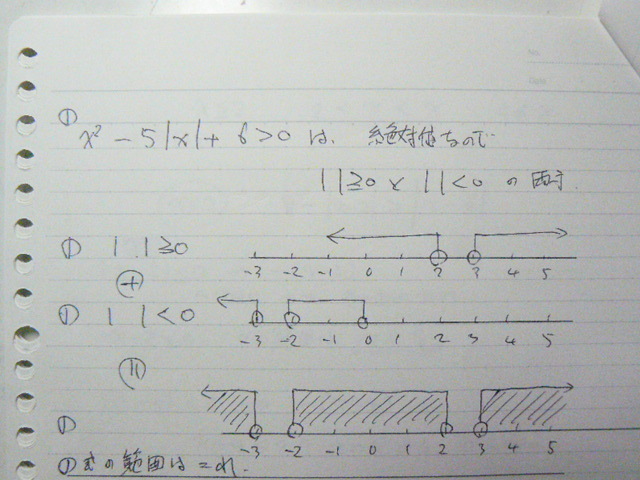 ①
x² - 5|x| + 6 > 0 は、絶対値なので
| |≧0 と | |<0 の両方
① | |≧0
-3 -2 -1 0 1 2 3 4 5
⊕
① | |<0
-3 -2 -1 0 1 2 3 4 5
①
-3 -2 -1 0 1 2 3 4 5
①式の範囲はこれ.